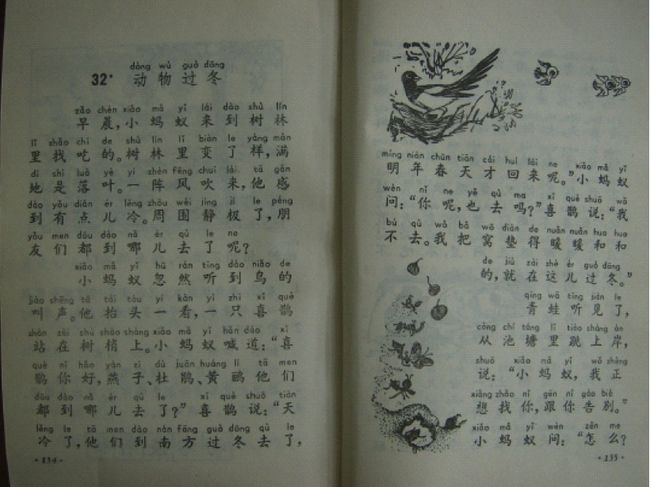 dòng wù guò dōng
32* 动物过冬
zǎo chén xiǎo mǎ yǐ lái dào shù lín
早晨,小蚂蚁来到树林
lǐ zhǎo chī de shù lín lǐ biàn le yàng mǎn
里找吃的。树林里变了样,满
dì shì luò yè yī zhèn fēng chuī lái tā gǎn
地是落叶。一阵风吹来,他感
dào yǒu diǎn ér lěng zhōu wéi jìng jí le péng
到有点儿冷。周围静极了,朋
yǒu men dōu dào nǎ ér qù le ne
友们都到哪儿去了呢?
xiǎo mǎ yǐ hū rán tīng dào niǎo de
小蚂蚁忽然听到鸟的
jiào shēng tā tái tóu yī kàn yī zhī xǐ què
叫声。他抬头一看,一只喜鹊
zhàn zài shù shāo shàng xiǎo mǎ yǐ hǎn dào xǐ
站在树梢上。小蚂蚁喊道:“喜
què nǐ hǎo yàn zi dù juān huáng lí tā men
鹊你好,燕子、杜鹃、黄鹂他们
dōu dào nǎ ér qù le xǐ què shuō tiān
都到哪儿去了?”喜鹊说:“天
lěng le tā men dào nán fāng guò dōng qù le
冷了,他们到南方过冬去了,
·134·
míng nián chūn tiān cái huí lái ne xiǎo mǎ yǐ
明年春天才回来呢。”小蚂蚁
wèn nǐ ne yě qù ma xǐ què shuō wǒ
问:“你呢,也去吗?”喜鹊说:“我
bú qù wǒ bǎ wō diàn de nuǎn nuǎn huo huo
不去。我把窝垫得暖暖和和
de jiù zài zhè ér guò dōng
的,就在这儿过冬。”
qīng wā tīng jiàn le
青蛙听见了,
cóng chí táng lǐ tiào shàng àn
从池塘里跳上岸,
shuō xiǎo mǎ yǐ wǒ zhèng
说:“小蚂蚁,我正
xiǎng zhǎo nǐ gēn nǐ gào bié
想找你,跟你告别。”
xiǎo mǎ yǐ wèn zěn me
小蚂蚁问:“怎么?
·135·